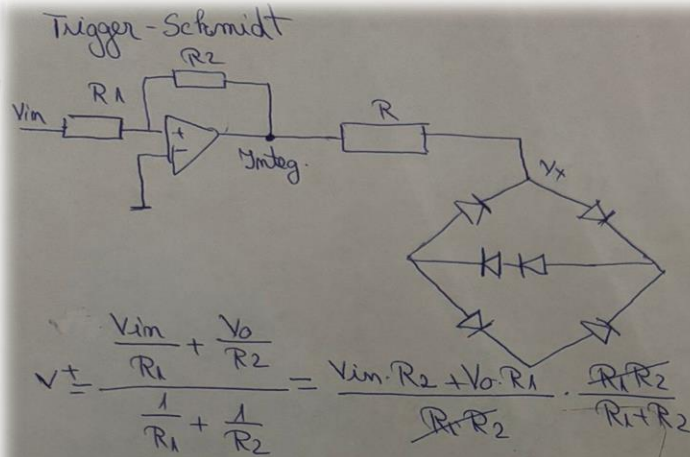 Trigger-Schmidt
R2
R1
Vin
+
-
Integ.
R
Vx
V+ = (Vin/R1 + Vo/R2) / (1/R1 + 1/R2) = (Vin·R2 + Vo·R1) / (R1·R2) · (R1·R2) / (R1+R2)